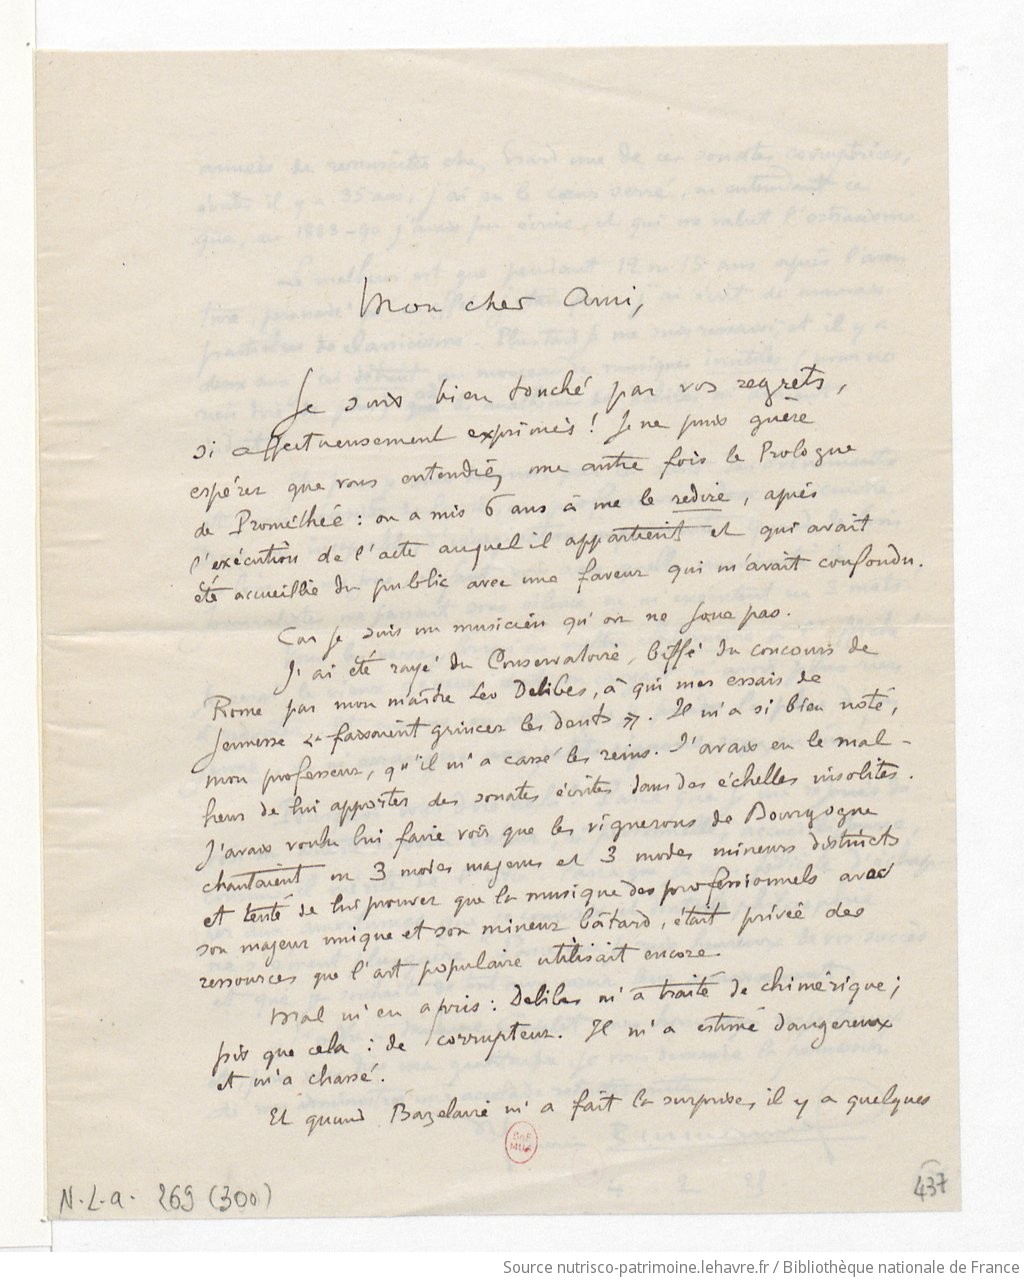 Mon cher Ami,
Je suis bien touché par vos regrets,
si affectueusement exprimés ! Je ne puis guère
espérer que vous entendiez une autre fois le Prologue
de Prométhée : on a mis 6 ans à me le redire, après
l'exécution de l'acte auquel il appartient et qui avait
été accueillie du public avec une faveur qui m'avait confondu.
Car je suis un musicien qu'on ne joue pas.
J'ai été rayé du Conservatoire, biffé du concours de
Rome par mon maître Leo Delibes, à qui mes essais de
jeunesse « faisaient grincer les dents ». Il m'a si bien noté,
mon professeur, qu'il m'a cassé les reins. J'avais eu le mal-
heur de lui apporter des sonates écrites dans des échelles insolites.
J'avais voulu lui faire voir que les vignerons de Bourgogne
chantaient en 3 modes majeurs et 3 modes mineurs distincts
et tenté de lui prouver que la musique des professionnels avec
son majeur unique et son mineur bâtard, était privée des
ressources que l'art populaire utilisait encore.
Mal m'en a pris : Delibes m'a traité de chimérique ;
pis que cela : de corrupteur. Il m'a estimé dangereux
et m'a chassé.
Et quand Bazelaire m'a fait la surprise, il y a quelques
BnF
MUS
N.L.a. 269 (300)
437
Source nutrisco-patrimoine.lehavre.fr / Bibliothèque nationale de France